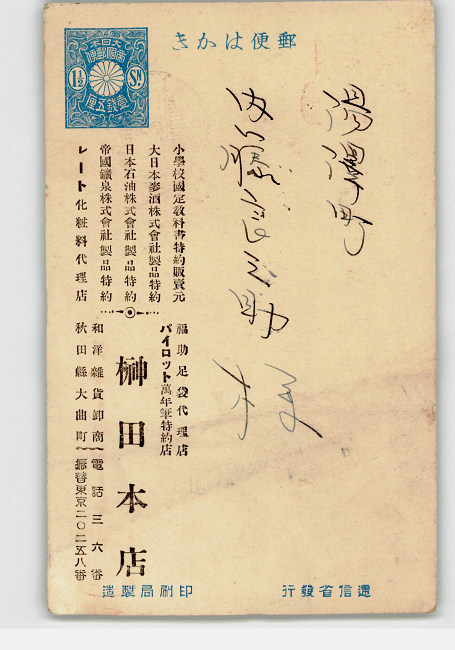 郵便はかき
大日本
帝國郵便
1½
SN
壹錢五厘
湯澤町
内藤良之助
様
小學校國定教科書特約販賣元
大日本麥酒株式會社製品特約
日本石油株式會社製品特約
帝國鑛泉株式會社製品特約
レート化粧料代理店
福助足袋代理店
パイロット萬年筆特約店
榊田本店
和洋雜貨卸商
電話三六番
秋田縣大曲町
振替東京二〇二五八番
遞信省發行
印刷局製造